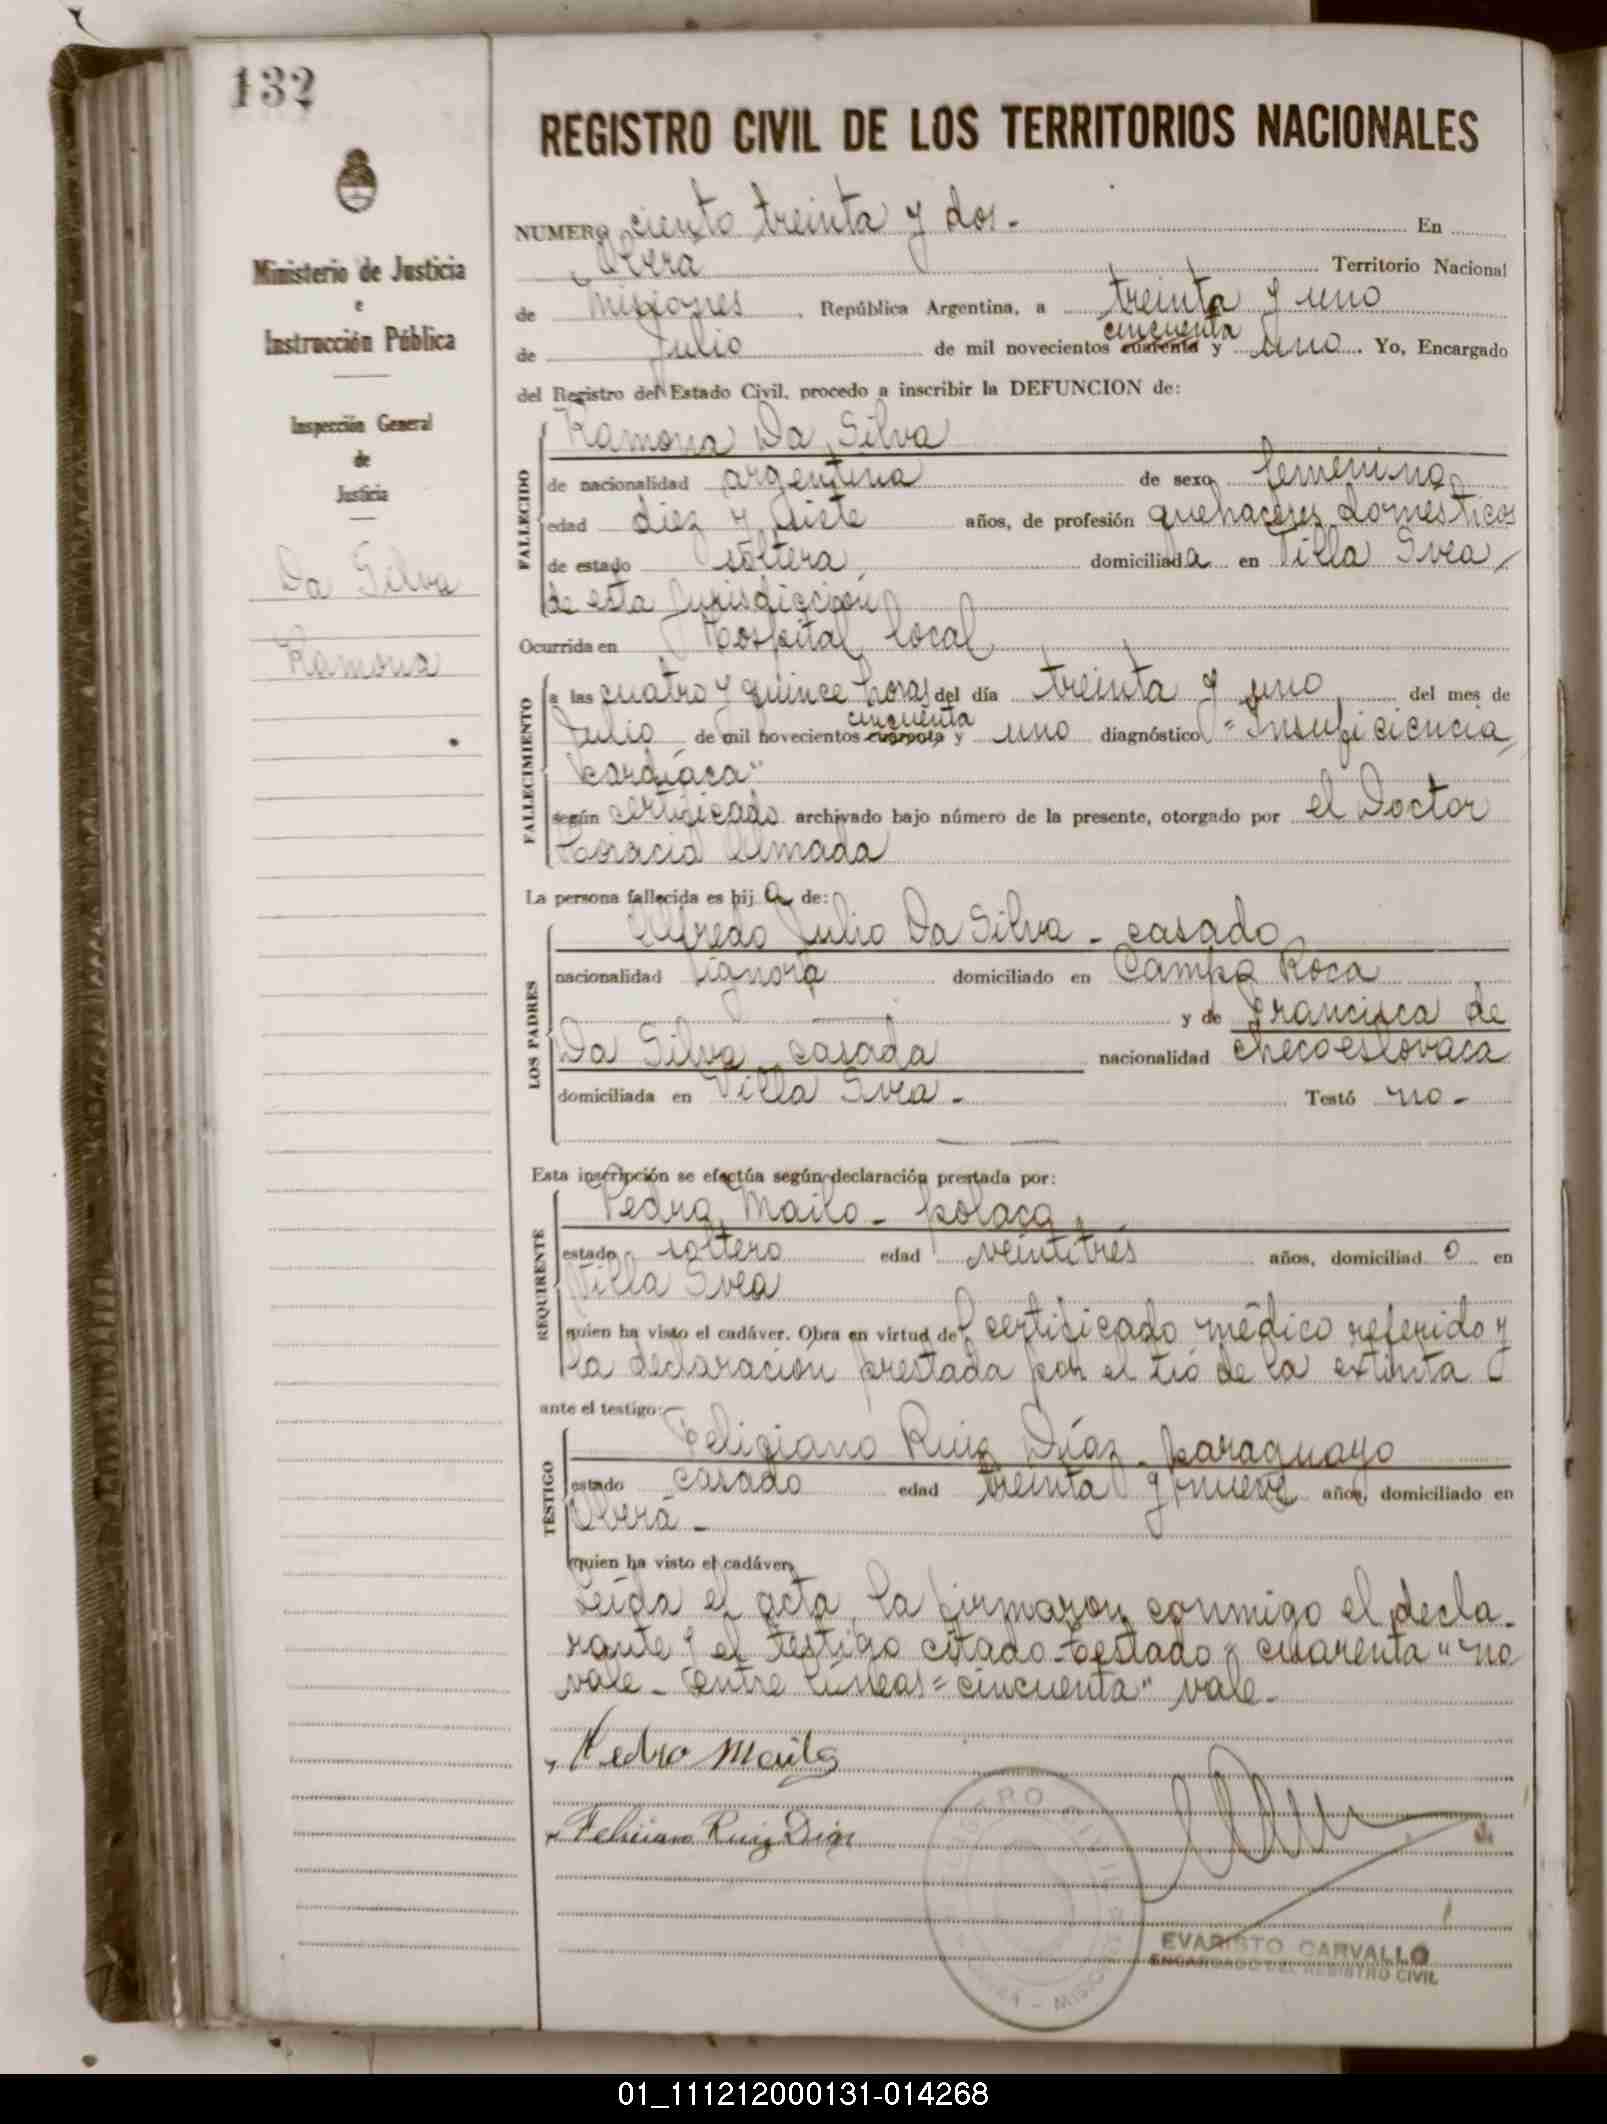 132
REGISTRO CIVIL DE LOS TERRITORIOS NACIONALES
Ministerio de Justicia
e
Instrucción Pública
Inspección General
de
Justicia
Da Silva
Ramona
NUMERO ciento treinta y dos - En
Oberá Territorio Nacional
de Misiones, República Argentina, a treinta y uno
de Julio de mil novecientos cuarenta cincuenta y uno. Yo, Encargado
del Registro del Estado Civil, procedo a inscribir la DEFUNCION de:
FALLECIDO
Ramona Da Silva
de nacionalidad argentina de sexo femenino
edad diez y siete años, de profesión quehaceres domésticos
de estado soltera domiciliada en Villa Svea,
de esta Jurisdicción
Ocurrida en Hospital local
FALLECIMIENTO
a las cuatro y quince horas del día treinta y uno del mes de
Julio de mil novecientos cuarenta cincuenta y uno diagnóstico "Insuficiencia
cardíaca"
según certificado archivado bajo número de la presente, otorgado por el Doctor
Horacio Almada
La persona fallecida es hija de:
LOS PADRES
Alfredo Julio Da Silva - casado
nacionalidad ignora domiciliado en Campo Roca
y de Francisca de
Da Silva casada nacionalidad checoeslovaca
domiciliada en Villa Svea - Testó no -
Esta inscripción se efectúa según declaración prestada por:
REQUIRENTE
Pedro Mailo - polaco
estado soltero edad veintitrés años, domiciliado en
Villa Svea
quien ha visto el cadáver. Obra en virtud del certificado médico referido y
la declaración prestada por el tío de la extinta
ante el testigo:
TESTIGO
Feliciano Ruiz Díaz - paraguayo
estado casado edad treinta y nueve años, domiciliado en
Oberá -
quien ha visto el cadáver
Leída el acta, la firmaron conmigo el decla-
rante y el testigo citado - Testado "cuarenta" no
vale - Entre líneas = cincuenta" vale -
Pedro
Feliciano Ruiz Diaz
REGISTRO CIVIL
EVARISTO CARVALLO
ENCARGADO DEL REGISTRO CIVIL
01_111212000131-014268